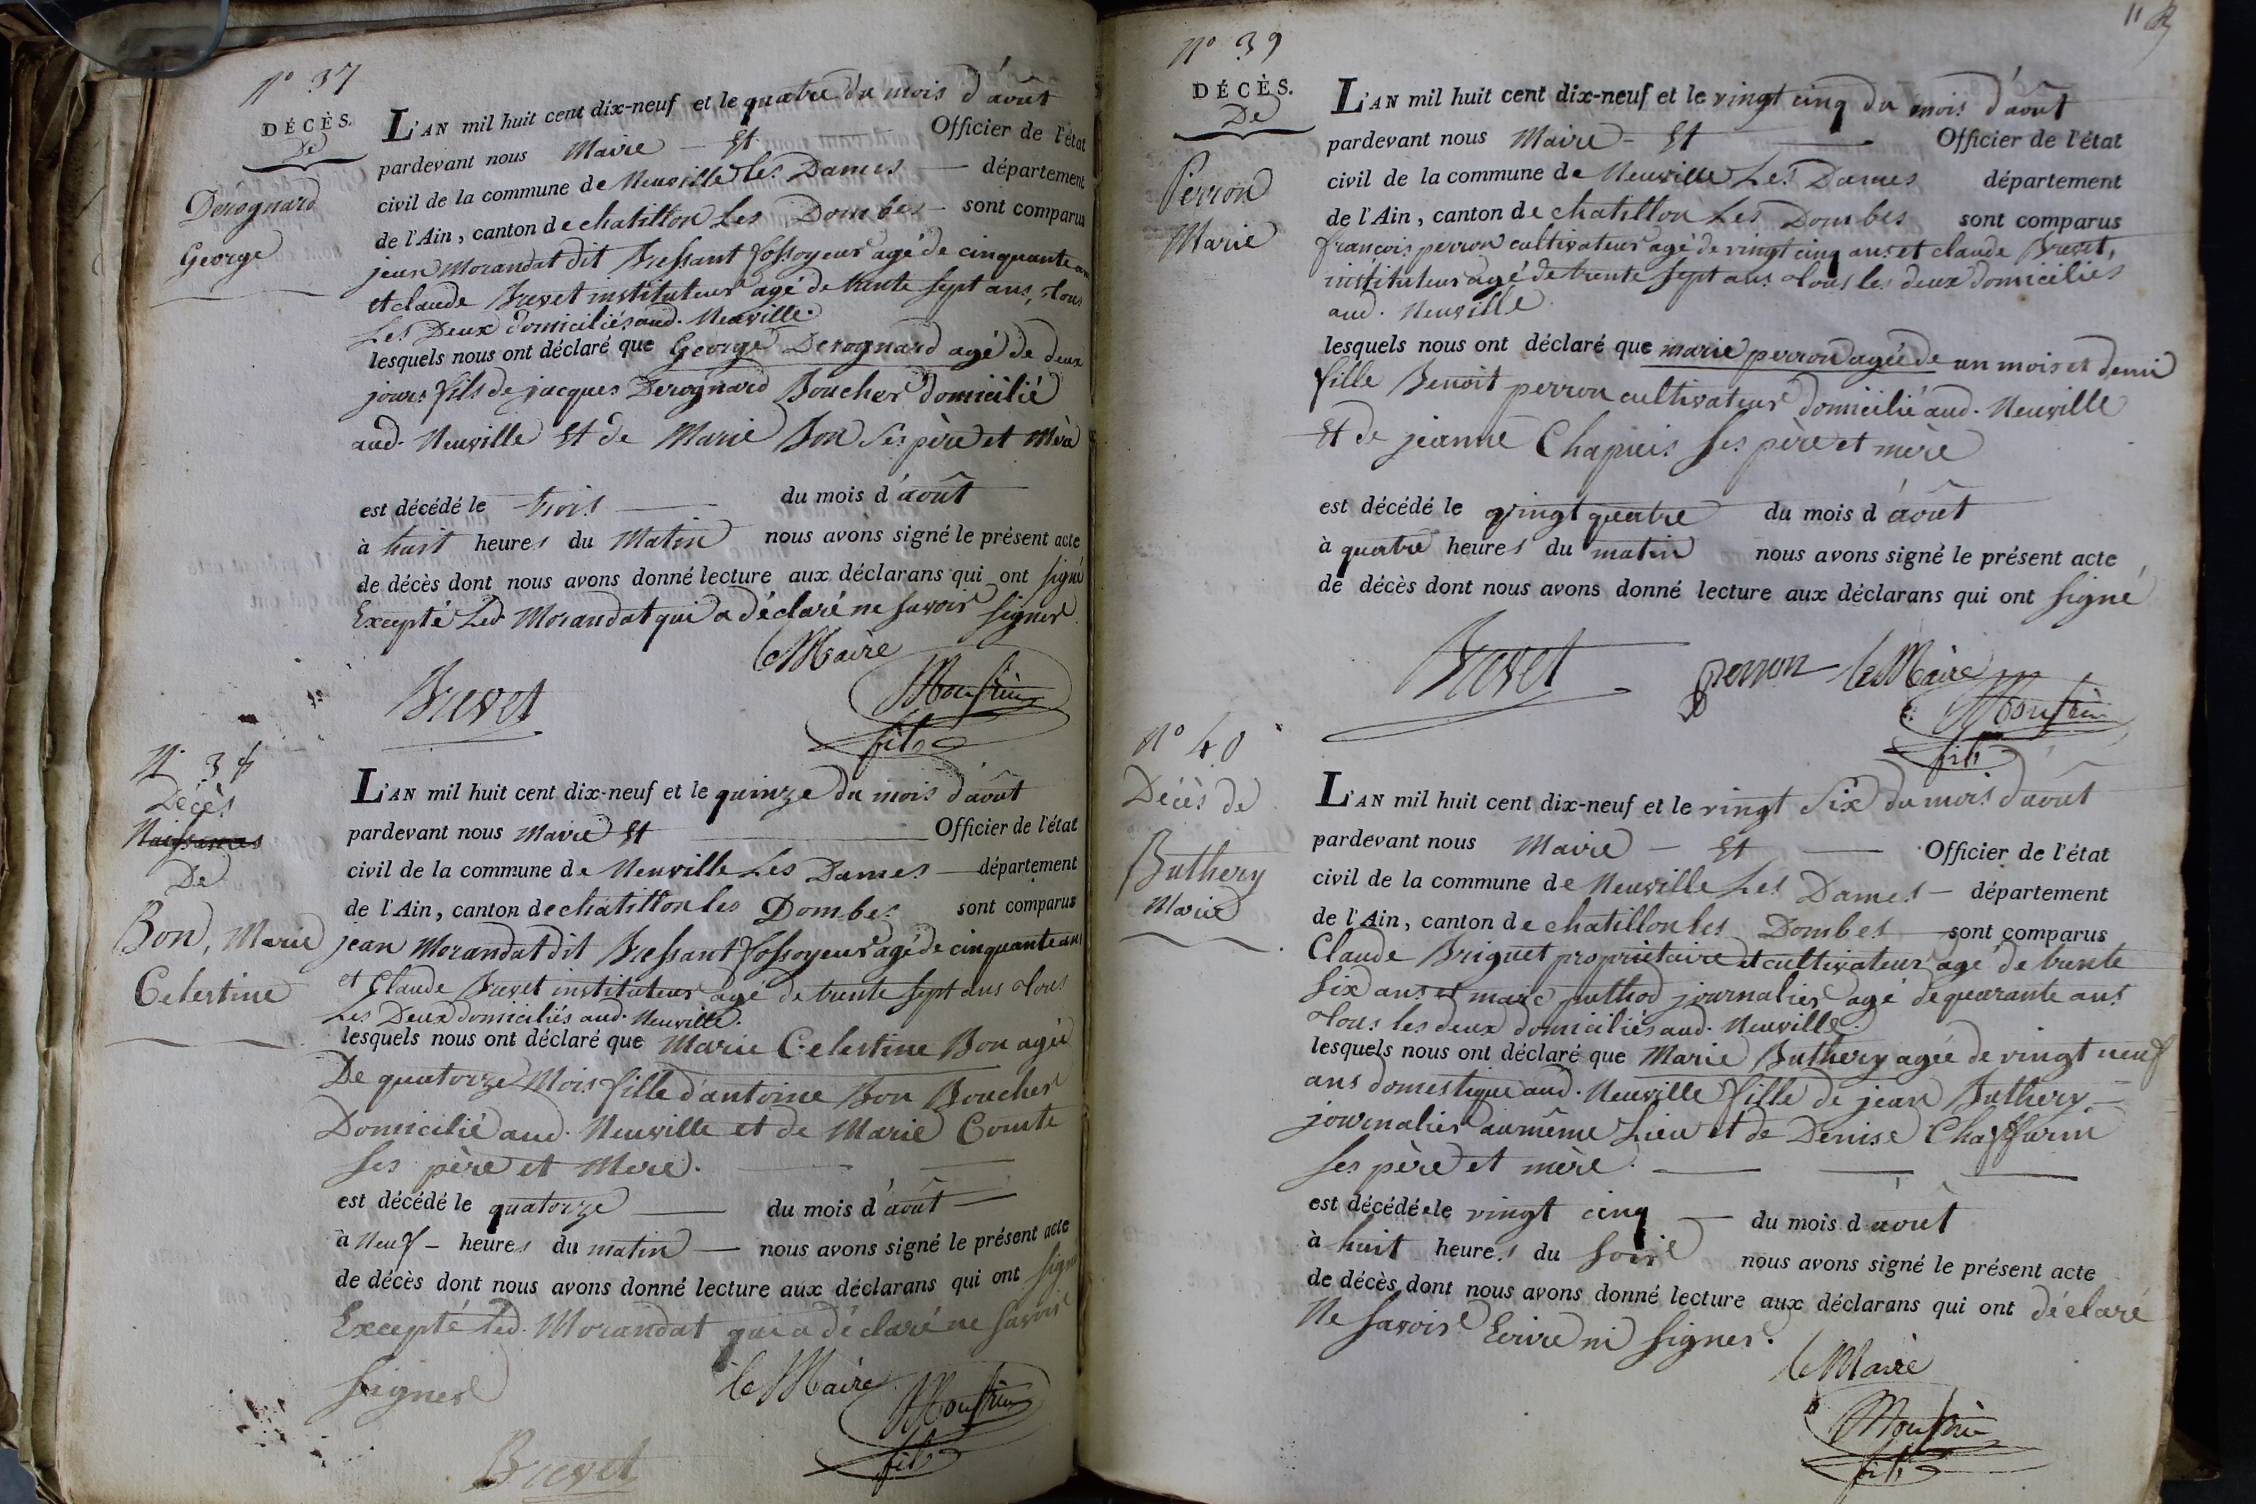 N° 37
DÉCÈS.
De
Derognard
George
L'AN mil huit cent dix-neuf et le quatre du mois d'août
pardevant nous Maire – Et – Officier de l'état
civil de la commune de Neuville les Dames – département
de l'Ain, canton de chatillon Les Dombes – sont comparus
jean Morandat dit Bressant fossoyeur agé de cinquante ans
et claude Brevet instituteur agé de trente sept ans, tous
Les Deux domiciliés aud. Neuville.
lesquels nous ont déclaré que George Derognard agé de deux
jours fils de jacques Derognard Boucher domicilié
aud. Neuville Et de Marie Bon Ses père et Mère
est décédé le trois – du mois d'août
à huit heures du Matin nous avons signé le présent acte
de décès dont nous avons donné lecture aux déclarans qui ont signé
Excepté Led. Morandat qui a déclaré ne savoir signer.
le Maire
Brevet
fils
N° 38
Décès
Naissances
De
Bon, Marie
Celestine
L'AN mil huit cent dix-neuf et le quinze du mois d'août
pardevant nous Maire Et – Officier de l'état
civil de la commune de Neuville Les Dames – département
de l'Ain, canton de chatillon les Dombes sont comparus
jean Morandat dit Bressant fossoyeur agé de cinquante ans
et Claude Brevet instituteur agé de trente sept ans tous
Les Deux domiciliés aud. Neuville.
lesquels nous ont déclaré que Marie Celestine Bon agée
De quatorze Mois fille d'antoine Bon Boucher
Domicilié aud. Neuville et de Marie Comte
Ses père et Mere.
est décédé le quatorze – du mois d'août –
à Neuf – heures du matin – nous avons signé le présent acte
de décès dont nous avons donné lecture aux déclarans qui ont signé
Excepté led. Morandat qui a déclaré ne savoir
signer
le Maire
fils
Brevet
11
N° 39
DÉCÈS.
De
Perron
Marie
L'AN mil huit cent dix-neuf et le vingt cinq du mois d'août
pardevant nous Maire – Et – Officier de l'état
civil de la commune de Neuville Les Dames département
de l'Ain, canton de chatillon Les Dombes sont comparus
francois perron cultivateur agé de vingt cinq ans et claude Brevet,
instituteur agé de trente sept ans tous les deux domiciliés
aud. Neuville
lesquels nous ont déclaré que marie perron agée de un mois et demi
fille Benoit perron cultivateur domicilié aud. Neuville
Et de jeanne Chapuis Ses père et mère
est décédé le vingt quatre du mois d'août
à quatre heures du matin nous avons signé le présent acte
de décès dont nous avons donné lecture aux déclarans qui ont signé
Brevet perron le Maire
fils
N° 40
Décès de
Buthery
Marie
L'AN mil huit cent dix-neuf et le vingt Six du mois d'août
pardevant nous Maire – Et – Officier de l'état
civil de la commune de Neuville Les Dames – département
de l'Ain, canton de chatillon les Dombes – sont comparus
Claude Briguet propriétaire et cultivateur agé de trente
six ans et marc puthod journalier agé de quarante ans
tous les deux domiciliés aud. Neuville.
lesquels nous ont déclaré que Marie Buthery agée de vingt neuf
ans domestique aud. Neuville fille de jean Buthery –
journalier au même Lieu et de Denise Chaffurin
Ses père et mère. –
est décédée le vingt cinq – du mois d'août
à huit heures du Soir nous avons signé le présent acte
de décès dont nous avons donné lecture aux déclarans qui ont déclaré
Ne savoir Ecrire ni signer.
le Maire
fils